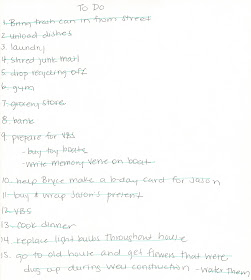 To Do
1. Bring trash can in from street
2. unload dishes
3. laundry
4. shred junk mail
5. drop recycling off
6. gym
7. grocery store
8. bank
9. prepare for VBS
- buy toy boats
- write memory verse on boat
10. help Bryce make a b-day card for Jason
11. buy & wrap Jason's present
12. VBS
13. cook dinner
14. replace light bulbs throughout house
15. go to old house and get flowers that were
dug up during wall construction - water them